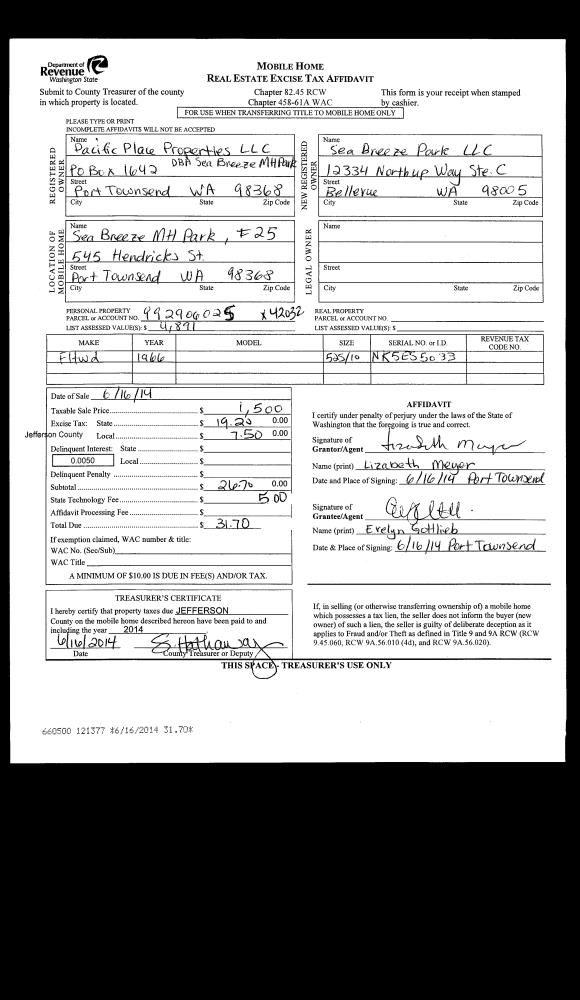 Department of
Revenue
Washington State
MOBILE HOME
REAL ESTATE EXCISE TAX AFFIDAVIT
Submit to County Treasurer of the county
in which property is located.
Chapter 82.45 RCW
Chapter 458-61A WAC
This form is your receipt when stamped
by cashier.
FOR USE WHEN TRANSFERRING TITLE TO MOBILE HOME ONLY
PLEASE TYPE OR PRINT
INCOMPLETE AFFIDAVITS WILL NOT BE ACCEPTED
REGISTERED OWNER
Name
Pacific Place Properties LLC
DBA Sea Breeze MH Park
PO Box 1642
Street
Port Townsend WA 98368
City State Zip Code
NEW REGISTERED OWNER
Name
Sea Breeze Park LLC
12334 Northup Way Ste. C
Street
Bellevue WA 98005
City State Zip Code
LOCATION OF MOBILE HOME
Name
Sea Breeze MH Park, #25
545 Hendricks St.
Street
Port Townsend WA 98368
City State Zip Code
LEGAL OWNER
Name
Street
City State Zip Code
PERSONAL PROPERTY
PARCEL or ACCOUNT NO. 992906025 x42032
LIST ASSESSED VALUE(S): $ 4,871
REAL PROPERTY
PARCEL or ACCOUNT NO.
LIST ASSESSED VALUE(S): $
MAKE YEAR MODEL SIZE SERIAL NO. or I.D. REVENUE TAX CODE NO.
Fltwd 1966 525/10 NK5ES5033
Date of Sale 6/16/14
Taxable Sale Price $ 1,500
Excise Tax: State $ 19.20 0.00
Jefferson County Local $ 7.50 0.00
Delinquent Interest: State $
0.0050 Local $
Delinquent Penalty $
Subtotal $ 26.70 0.00
State Technology Fee $ 5.00
Affidavit Processing Fee $
Total Due $ 31.70
If exemption claimed, WAC number & title:
WAC No. (Sec/Sub)
WAC Title
A MINIMUM OF $10.00 IS DUE IN FEE(S) AND/OR TAX.
AFFIDAVIT
I certify under penalty of perjury under the laws of the State of
Washington that the foregoing is true and correct.
Signature of
Grantor/Agent Lizabeth Meyer
Name (print) Lizabeth Meyer
Date and Place of Signing: 6/16/14 Port Townsend
Signature of
Grantee/Agent
Name (print) Evelyn Gottlieb
Date & Place of Signing: 6/16/14 Port Townsend
TREASURER'S CERTIFICATE
I hereby certify that property taxes due JEFFERSON
County on the mobile home described hereon have been paid to and
including the year 2014
6/16/2014 S. Hathaway
Date County Treasurer or Deputy
If, in selling (or otherwise transferring ownership of) a mobile home
which possesses a tax lien, the seller does not inform the buyer (new
owner) of such a lien, the seller is guilty of deliberate deception as it
applies to Fraud and/or Theft as defined in Title 9 and 9A RCW (RCW
9.45.060, RCW 9A.56.010 (4d), and RCW 9A.56.020).
THIS SPACE - TREASURER'S USE ONLY
660500 121377 *6/16/2014 31.70*